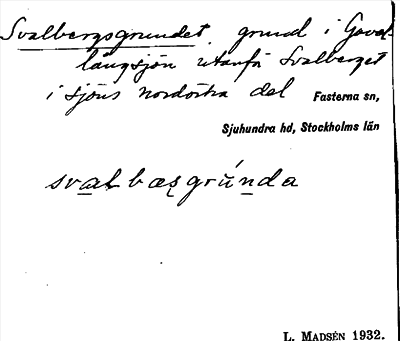 Svalbergsgrundet, grund i Gavel-
långsjön utanfö Svalberget
i sjöns nordöstra del Fasterna sn,
Sjuhundra hd, Stockholms län
svalbæsgrúnda
L. MADSÉN 1932.